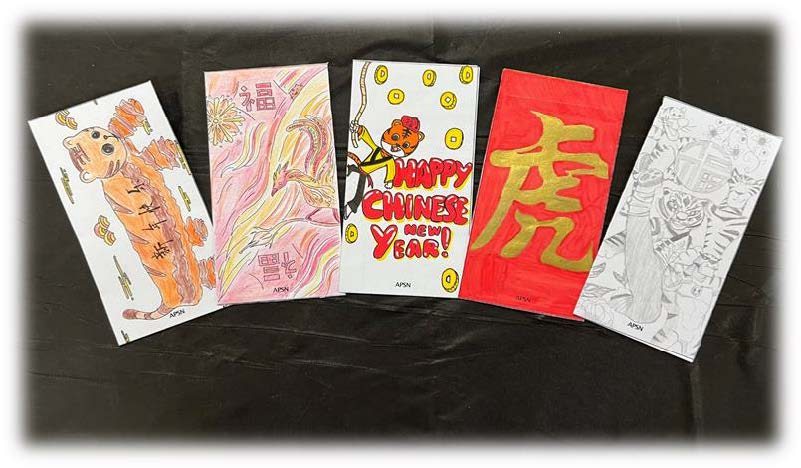 新年快乐
APSN
福
福
APSN
HAPPY
CHINESE
NEW
YEAR!
APSN
虎
APSN
APSN